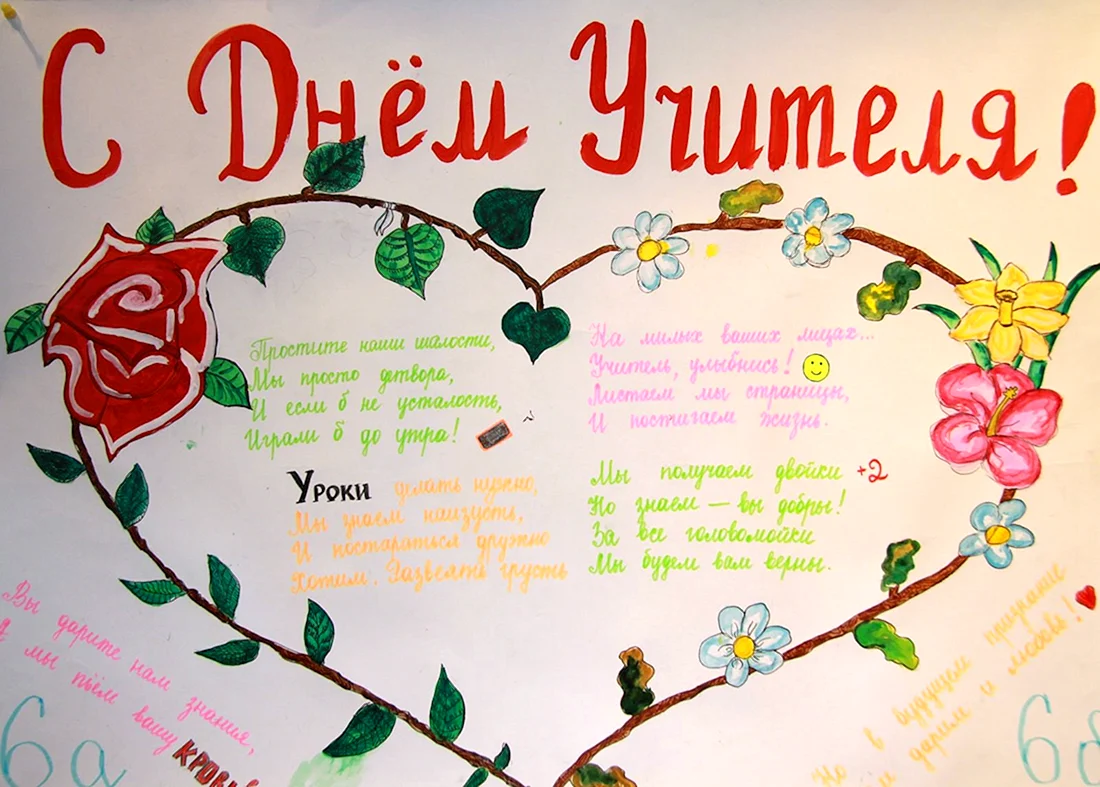 С Днём Учителя!
Простите наши шалости,
Мы просто детвора,
И если б не усталость,
Играли б до утра!
На милых ваших лицах...
Учитель, улыбнись!
Листаем мы страницы,
И постигаем жизнь.
Уроки делать нужно,
Мы знаем наизусть,
И постараться дружно
Хотим. Развеять грусть
Мы получаем двойки +2
Но знаем — вы добры!
За все головомойки
Мы будем вам верны.
Вы дарите нам знания,
А мы пьём вашу кровь
Но в будущем признание
дарим и любовь!
6а
6б